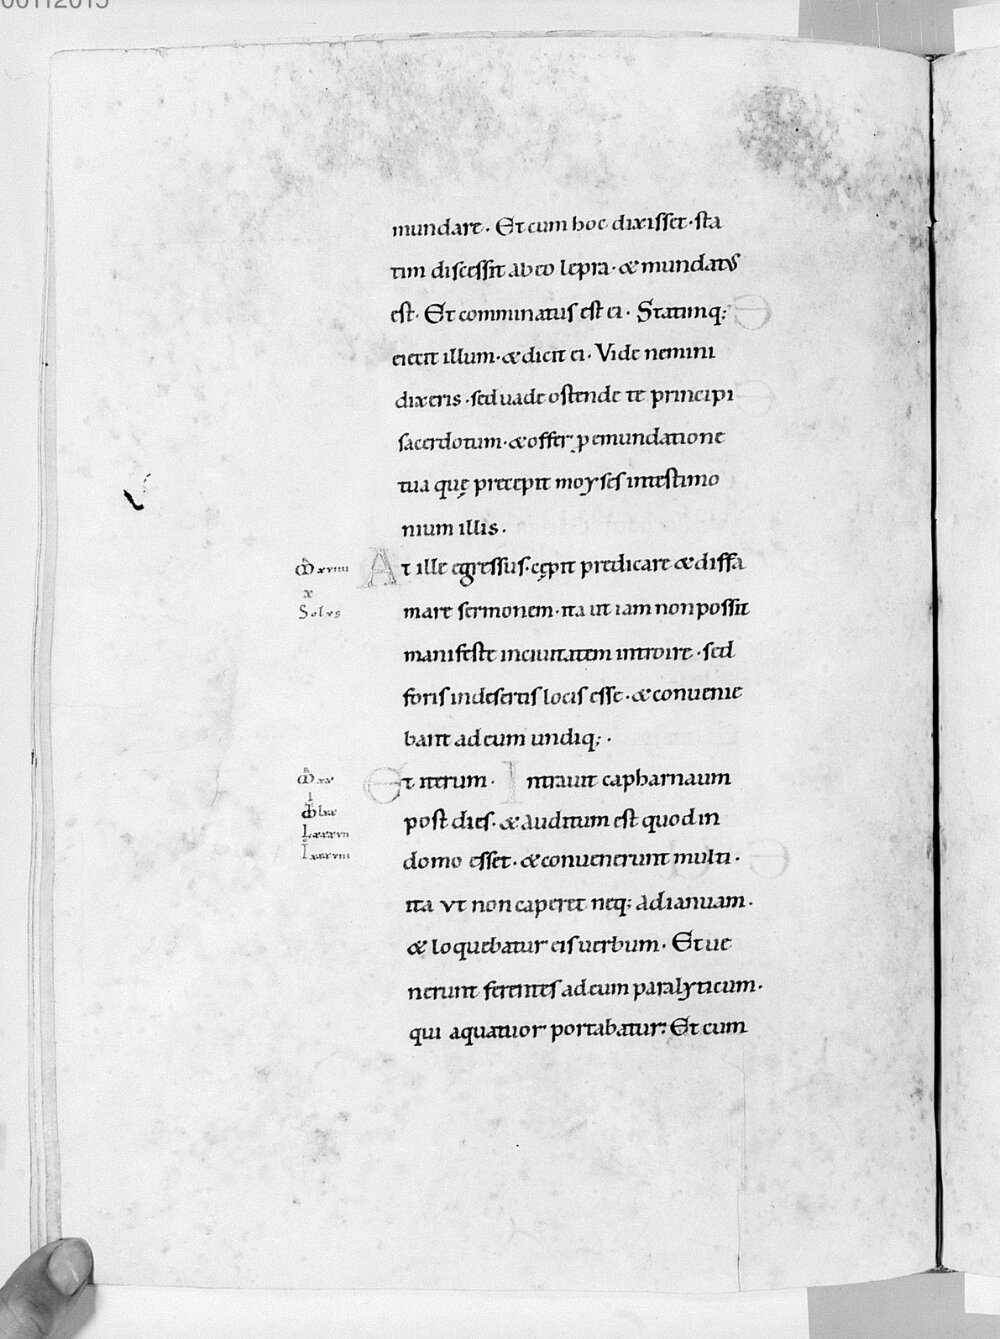 00112015
mundare· Et cum hoc dixisset· sta
tim discessit ab eo lepra· & mundatus
est· Et comminatus est ei· Statimq;
eiecit illum· & dicit ei· Vide nemini
dixeris· sed uade ostende te principi
sacerdotum· & offer ꝓ emundatione
tua quę precepit moyses in testimo
nium illis·
At ille egressus· cępit predicare & diffa
mare sermonem· ita ut iam non possit
manifeste in ciuitatem introire· sed
foris in desertis locis esse· & conuenie
bant ad eum undiq;·
Et iterum· Intrauit capharnaum
post dies· & auditum est quod in
domo esset· & conuenerunt multi·
ita vt non caperet neq; ad ianuam·
& loquebatur eis uerbum· Et ue
nerunt ferentes ad eum paralyticum·
qui a quatuor portabatur: Et cum
xviiii
x
Solvs
xx
lxx
lxxxvii
lxxxviii